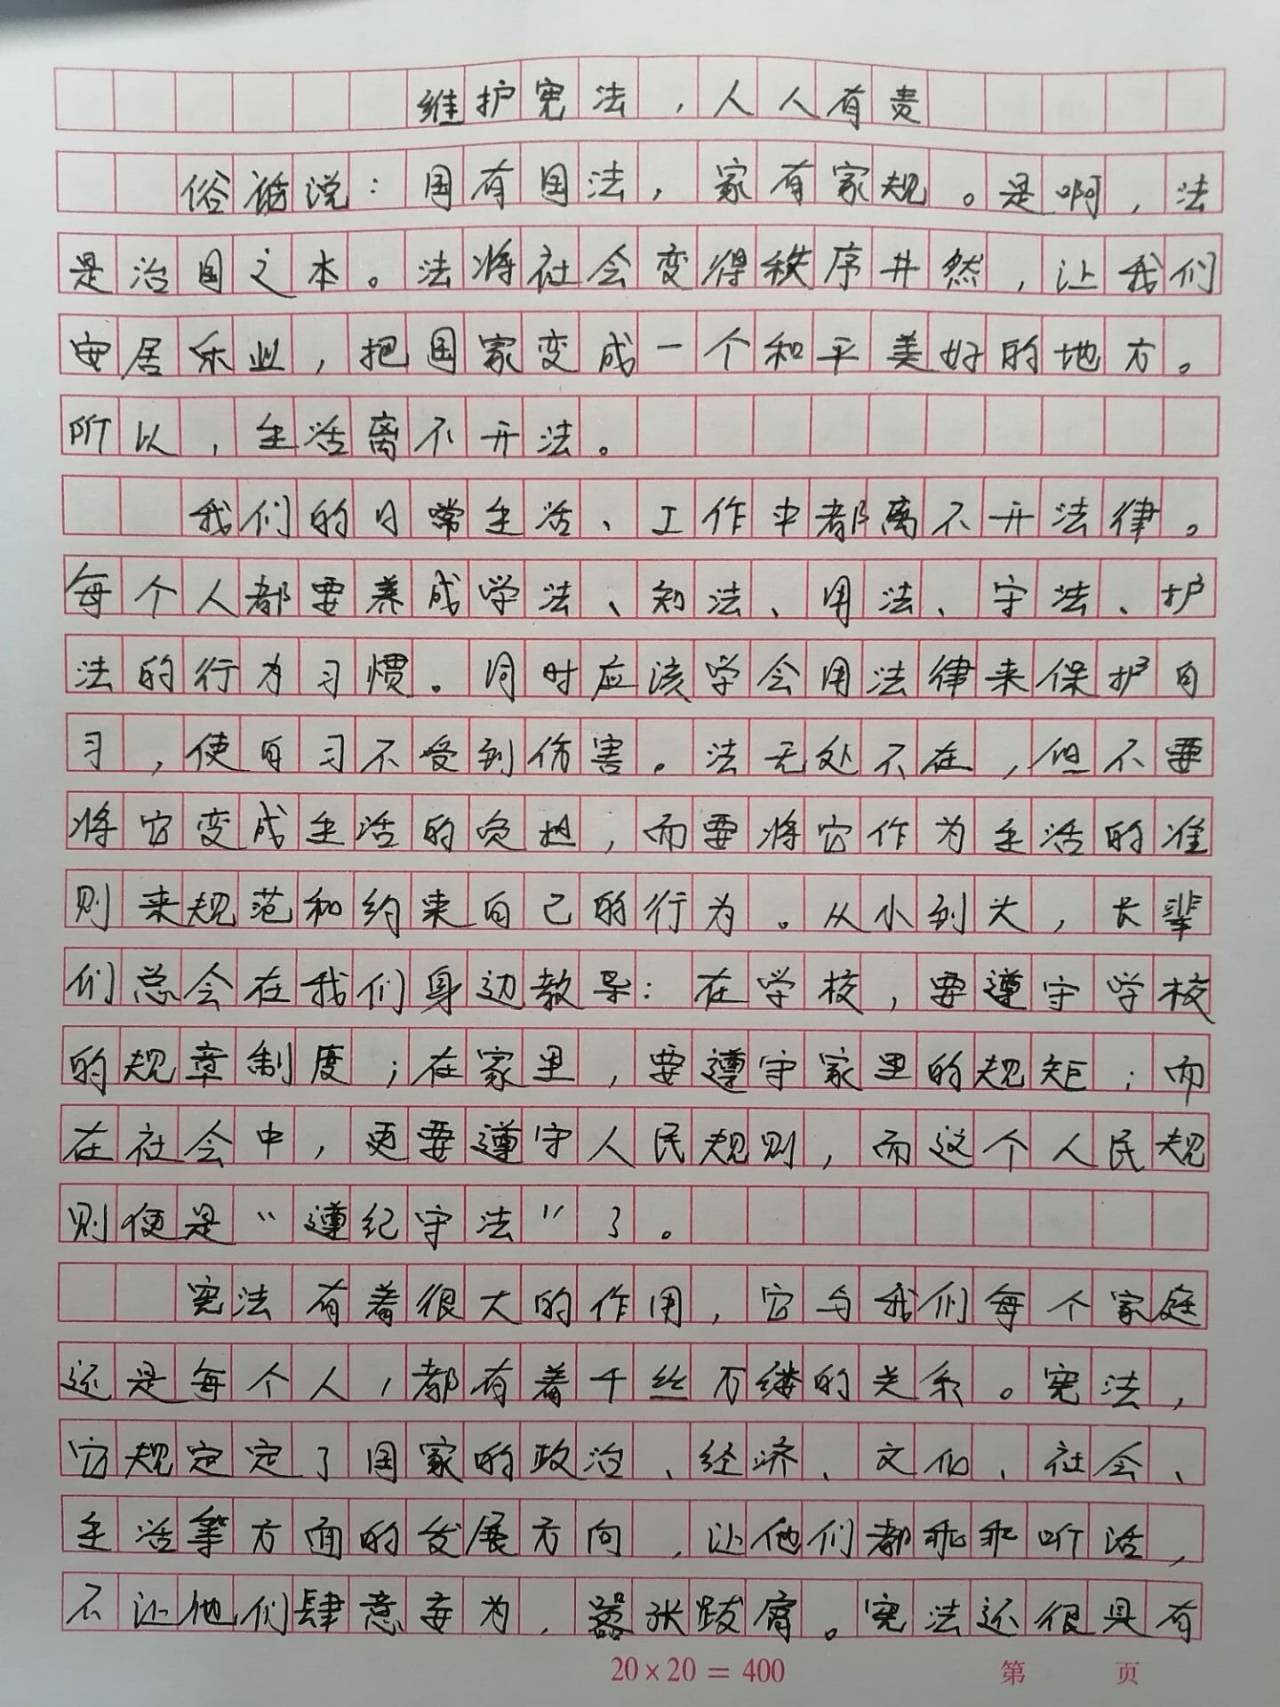 维护宪法，人人有责
俗话说：国有国法，家有家规。是啊，法
是治国之本。法将社会变得秩序井然，让我们
安居乐业，把国家变成一个和平美好的地方。
所以，生活离不开法。
我们的日常生活、工作中都离不开法律。
每个人都要养成学法、知法、用法、守法、护
法的行为习惯。同时应该学会用法律来保护自
习，使自习不受到伤害。法无处不在，但不要
将它变成生活的负担，而要将它作为生活的准
则来规范和约束自己的行为。从小到大，长辈
们总会在我们身边教导：在学校，要遵守学校
的规章制度；在家里，要遵守家里的规矩；而
在社会中，更要遵守人民规则，而这个人民规
则便是“遵纪守法”了。
宪法有着很大的作用，它与我们每个家庭
还是每个人，都有着千丝万缕的关系。宪法，
它规定定了国家的政治、经济、文化、社会、
生活等方面的发展方向，让他们都乖乖听话，
不让他们肆意妄为，嚣张跋扈。宪法还很具有
20×20=400 第 页